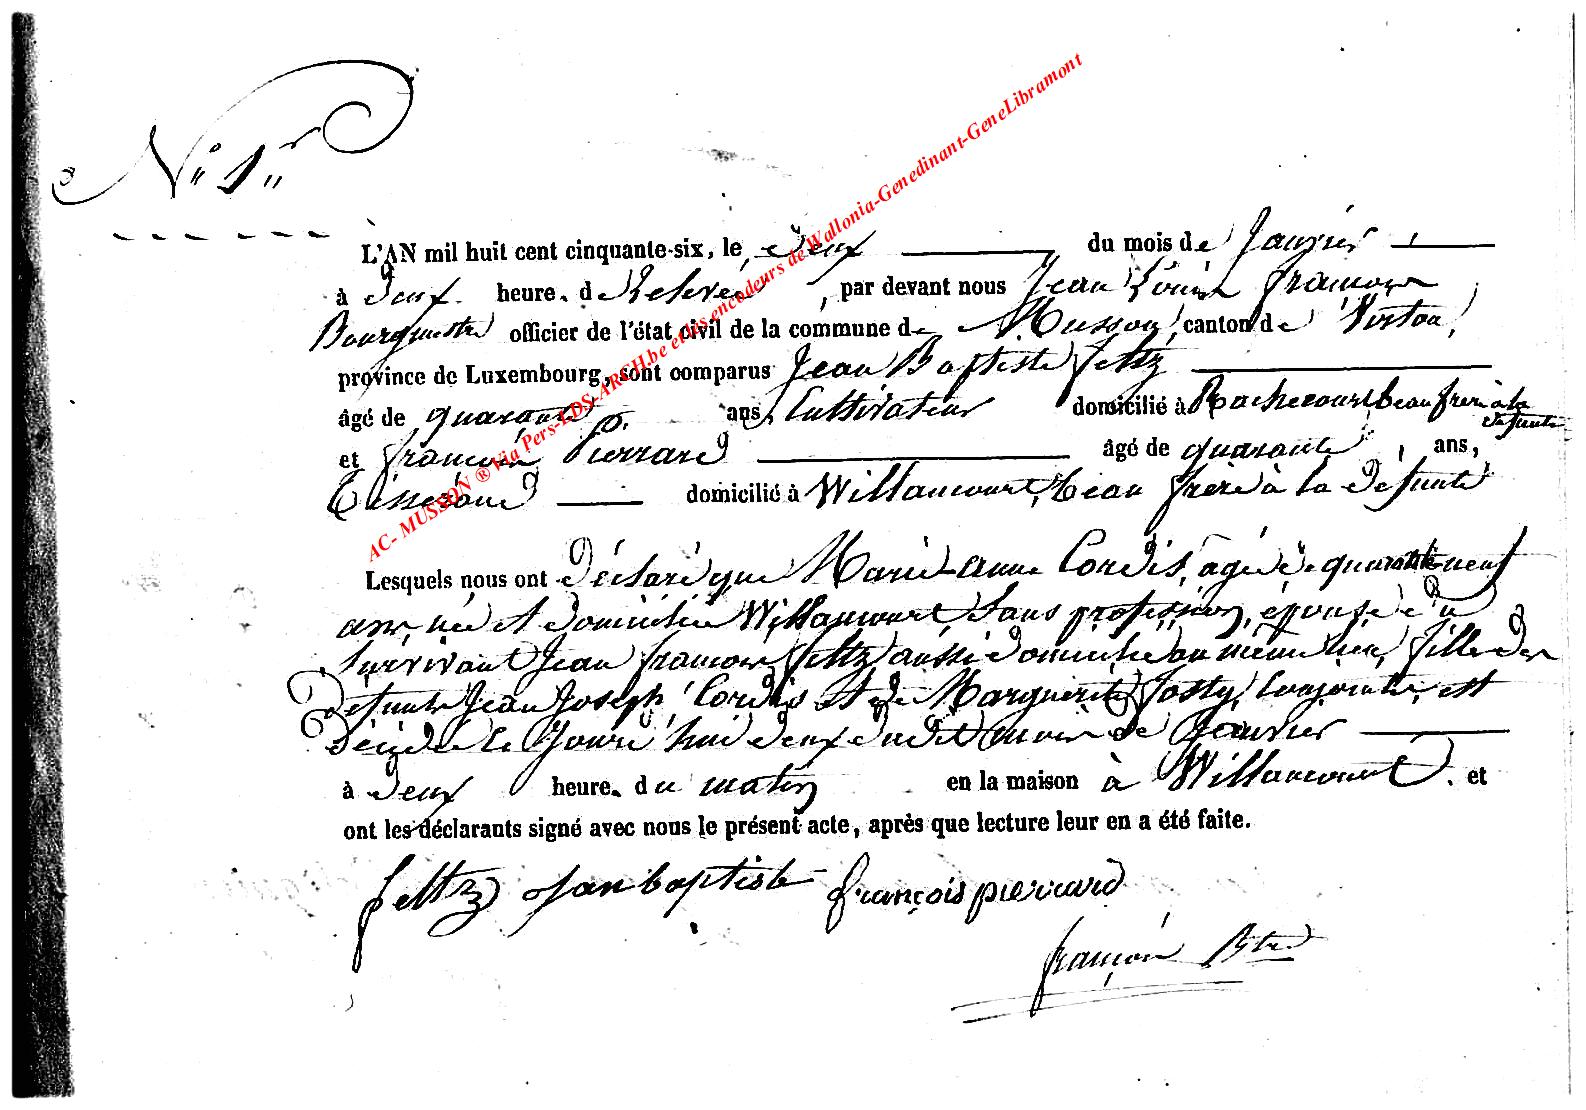 N° 1er
AC- MUSSON ® Via Pers-LDS-ARCH.be et les encodeurs de Wallonia-Genedinant-GeneLibramont
L'AN mil huit cent cinquante-six, le deux du mois de Janvier
à deux heures de Relevée, par devant nous Jean Louis françois
Bourgmestre officier de l'état civil de la commune de Musson, canton de Virton,
province de Luxembourg, sont comparus Jean Baptiste feltz
âgé de quarante ans, Cultivateur domicilié à Rachecourt beau frère à la
défunte
et françois Pierrard âgé de quarante ans,
Tisserand domicilié à Willancourt, beau frère à la défunte
Lesquels nous ont déclaré que Marie-Anne Cordis, agée de quarante neuf
ans, née et domiciliée Willancourt, Sans profession, épouse du
Survivant Jean françois feltz aussi domicilié au même lieu, fille des
défunts Jean Joseph Cordis et de Marguerite Josty, Conjoints, est
décédée le Jourd'hui deux dudit mois de Janvier
à deux heures du matin en la maison à Willancourt. et
ont les déclarants signé avec nous le présent acte, après que lecture leur en a été faite.
feltz Jan baptiste françois pierrard
françois Btre